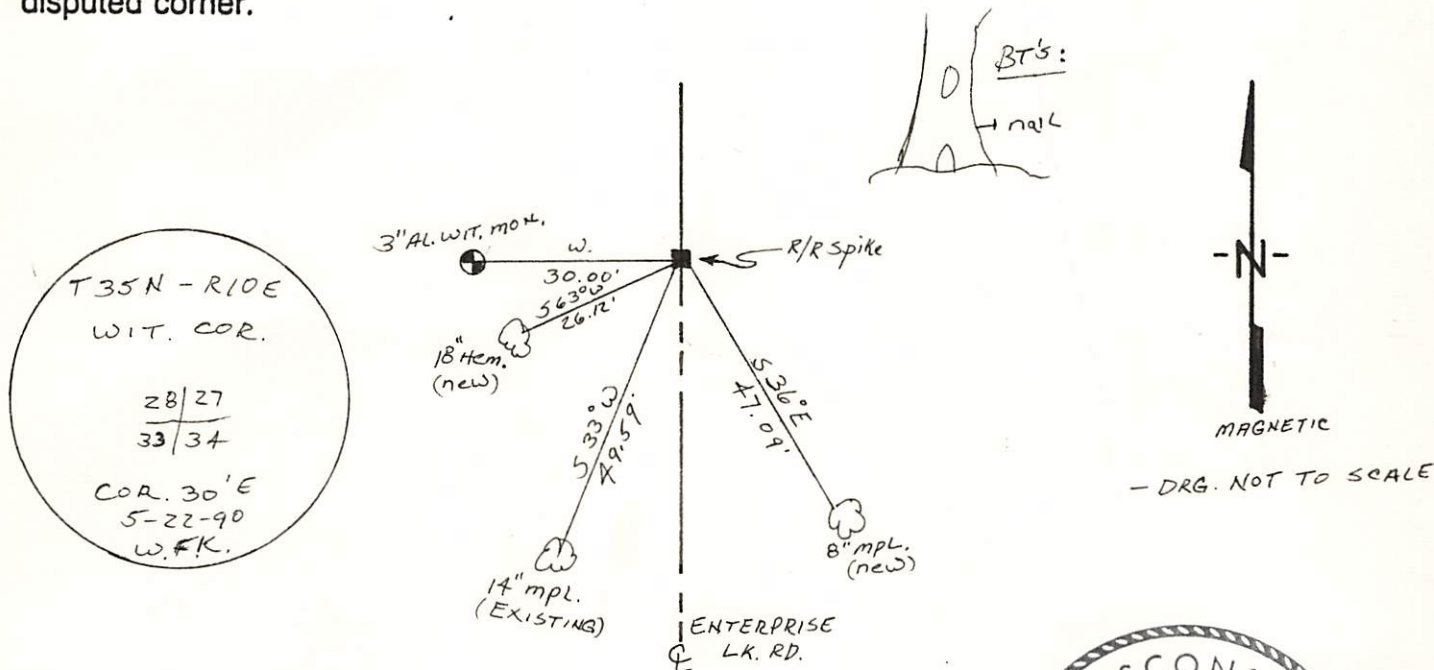 disputed corner.
BT's:
nail
3" AL. WIT. MON.
W.
30.00'
R/R Spike
S63°W
26.12'
18" Hem.
(new)
S33°W
49.59'
S36°E
47.09'
14" mpl.
(EXISTING)
8" mpl.
(new)
ENTERPRISE
LK. RD.
T35N - R10E
WIT. COR.
28|27
33|34
COR. 30'E
5-22-90
W.F.K.
-N-
MAGNETIC
- DRG. NOT TO SCALE
SCONS